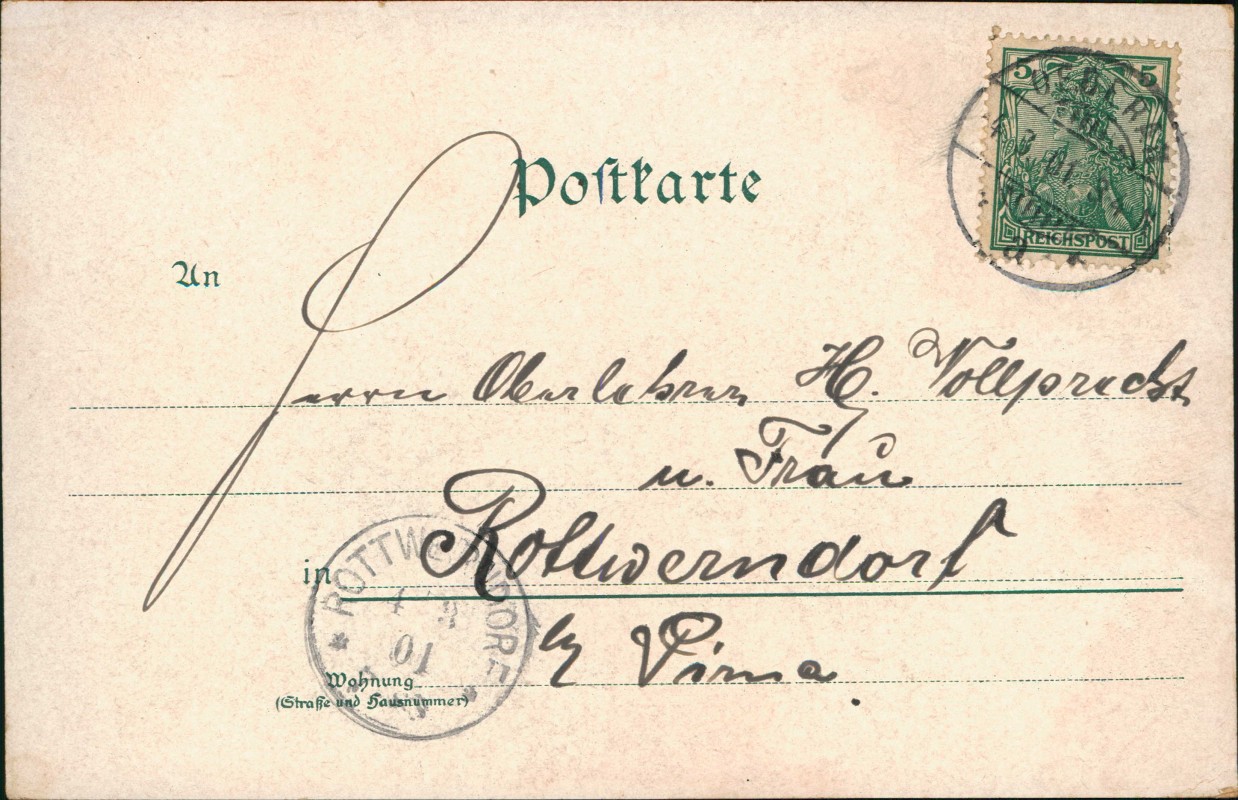 Postkarte
5 5
OEDERAN
4 3 01
a
REICHSPOST
An
Herrn Oberlehrer H. Vollprecht
u. Frau
in Rottwerndorf
b/ Pirna.
ROTTWERNDORF
4 3
01
Wohnung
(Straße und Hausnummer)